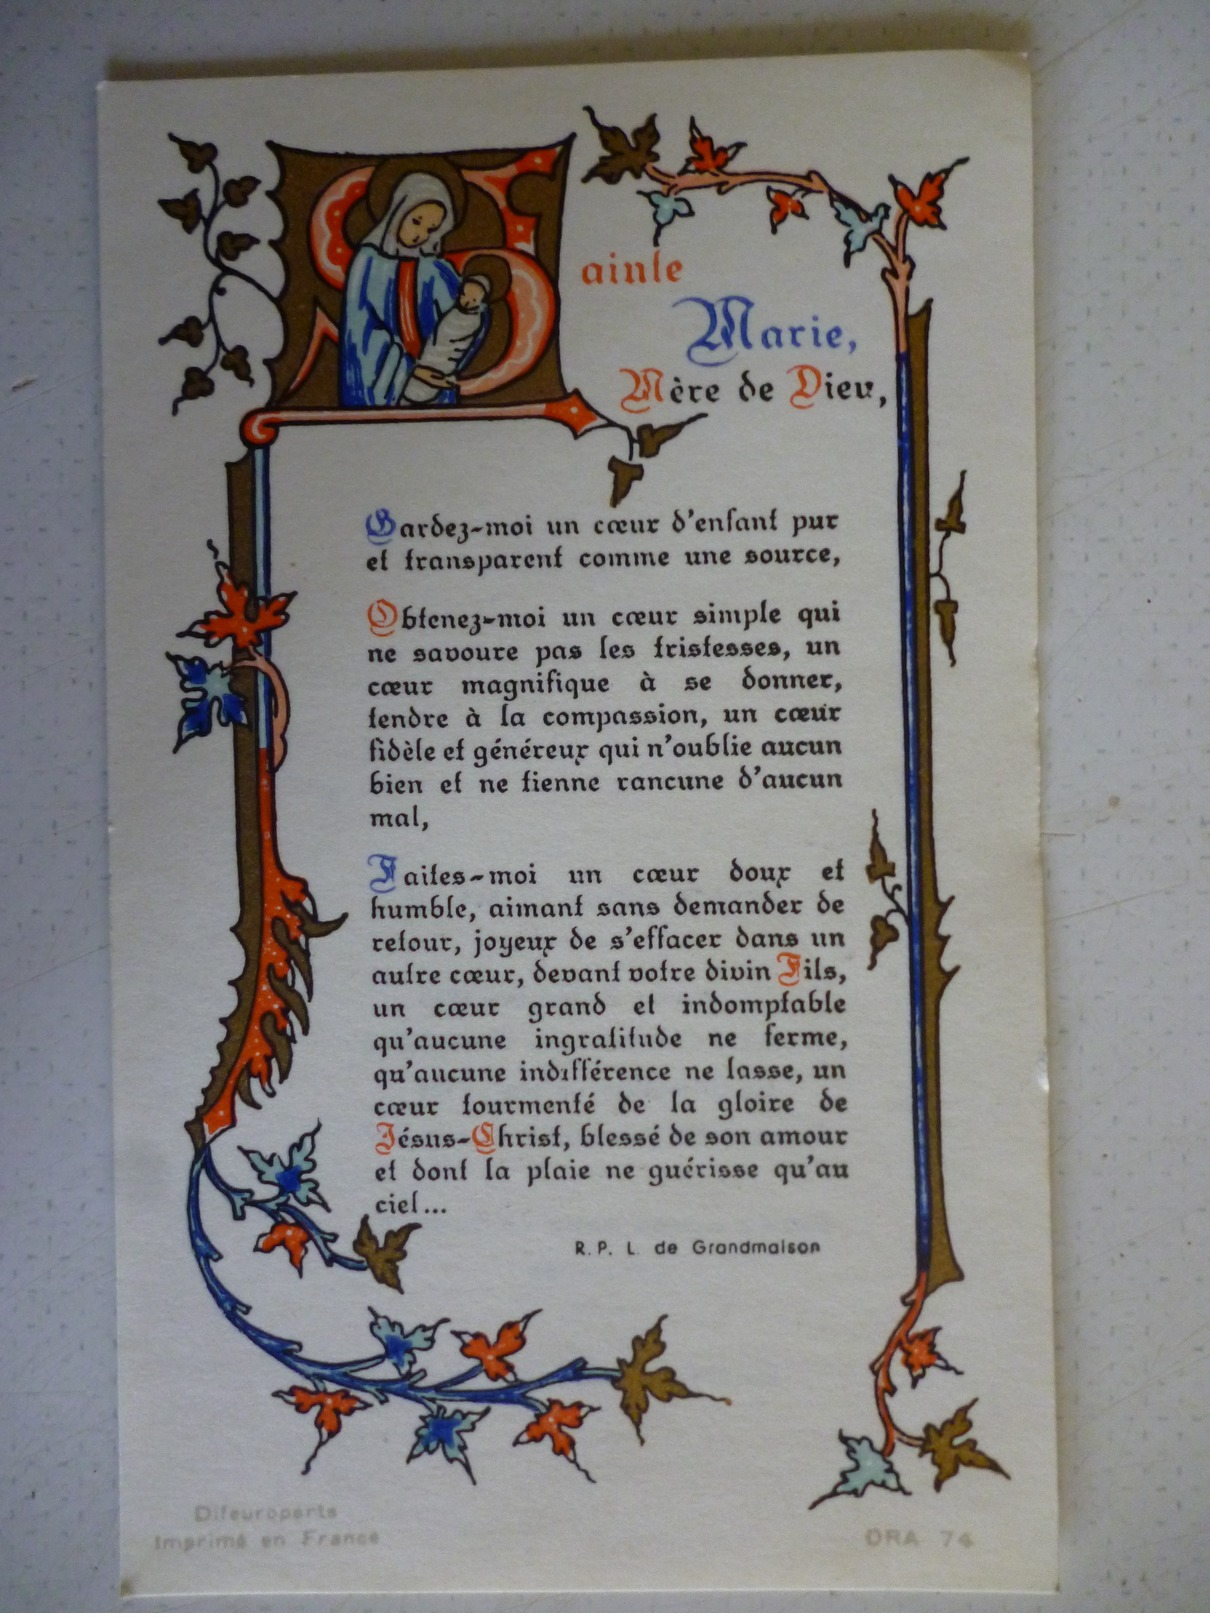 Sainte
Marie,
Mère de Dieu,
Gardez-moi un cœur d'enfant pur
et transparent comme une source,
Obtenez-moi un cœur simple qui
ne savoure pas les tristesses, un
cœur magnifique à se donner,
tendre à la compassion, un cœur
fidèle et généreux qui n'oublie aucun
bien et ne tienne rancune d'aucun
mal,
Faites-moi un cœur doux et
humble, aimant sans demander de
retour, joyeux de s'effacer dans un
autre cœur, devant votre divin Fils,
un cœur grand et indomptable
qu'aucune ingratitude ne ferme,
qu'aucune indifférence ne lasse, un
cœur tourmenté de la gloire de
Jésus-Christ, blessé de son amour
et dont la plaie ne guérisse qu'au
ciel...
R. P. L. de Grandmaison
Difeuroparts
Imprimé en France
ORA 74